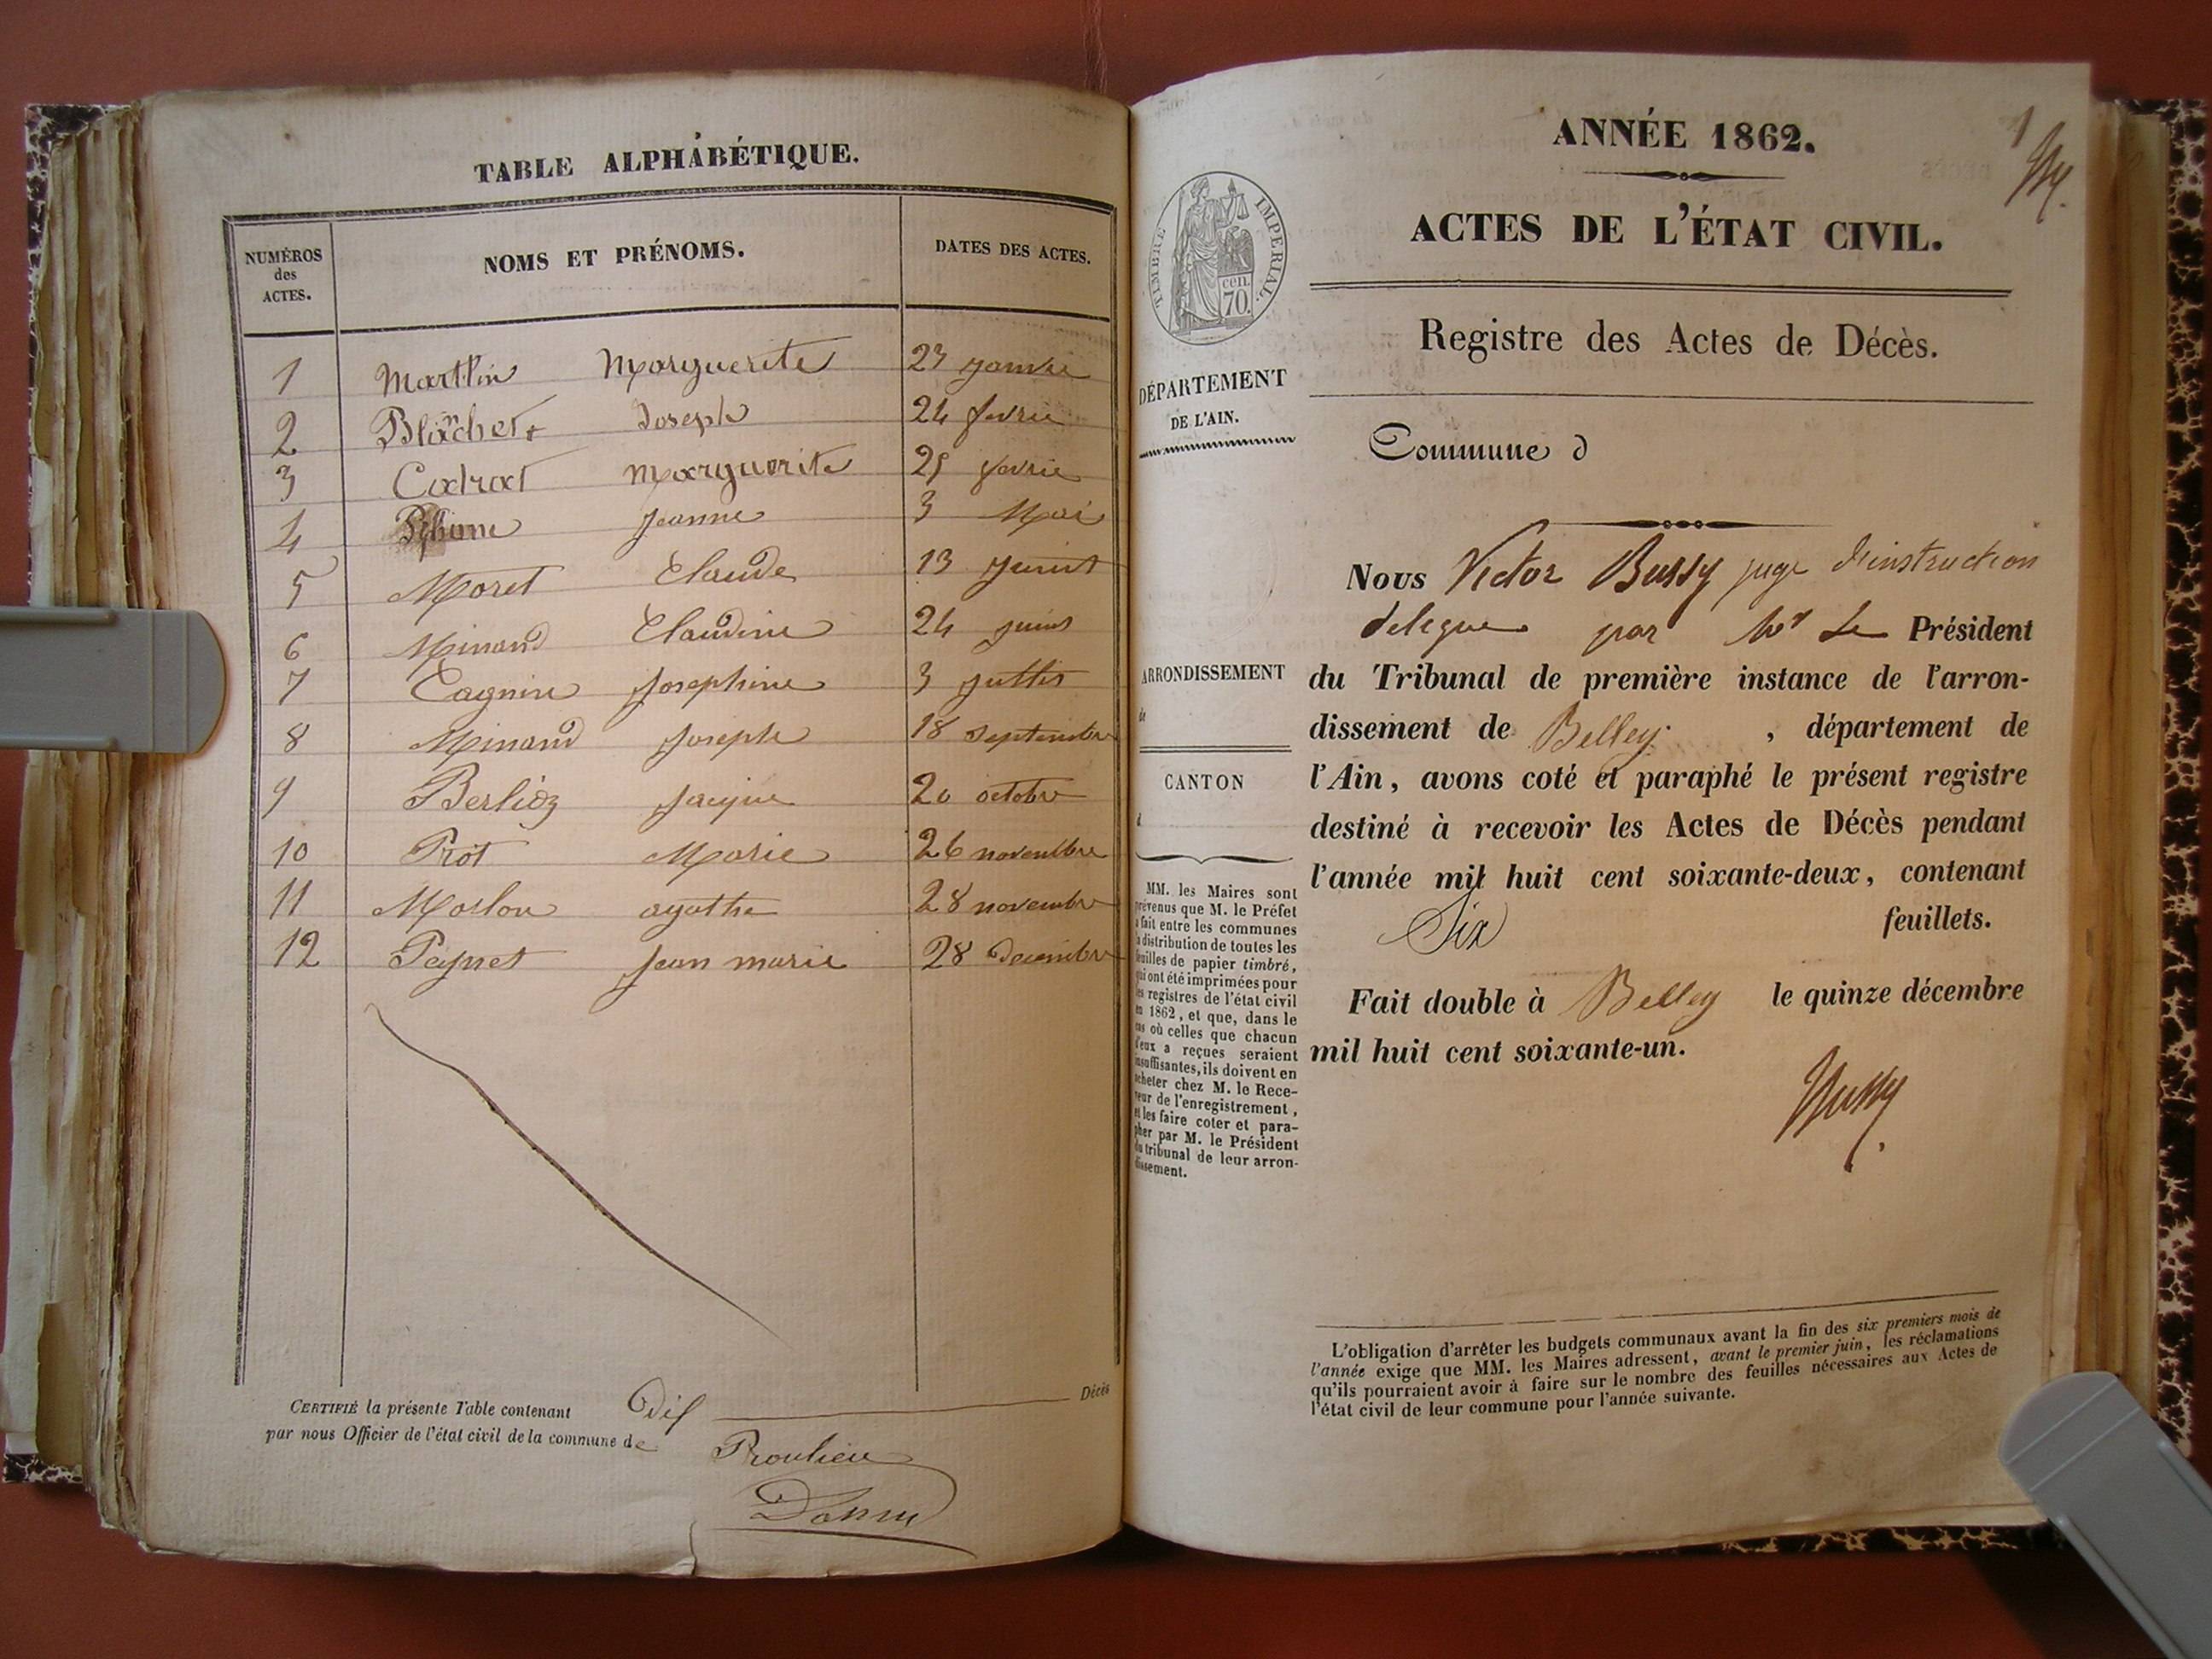 TABLE ALPHABÉTIQUE.
NUMÉROS
des
ACTES.
NOMS ET PRÉNOMS.
DATES DES ACTES.
1 Marthin Marguerite 23
2 Blanchet Joseph 24 fevrie
3 Cadrat Marguerite 25 fevrie
4 Jeanne 3 Mai
5 Moret Claude 13
6 Minand Claudine 24 juint
7 Cagnin Josephine 3
8 Minand Joseph 18 septembre
9 Berlioz Jacque 20 octobre
10 Prot Marie 26 novembre
11 agathe 28 novembre
12 Peynet Jean marie 28 Decembre
CERTIFIÉ la présente Table contenant Décès
par nous Officier de l'état civil de la commune de
Proulieu
ANNÉE 1862.
1
ACTES DE L'ÉTAT CIVIL.
Registre des Actes de Décès.
TIMBRE IMPERIAL.
cen.
70.
DÉPARTEMENT
DE L'AIN.
Commune d
Nous Victor Bussy juge d'instruction
delegue par Mr Le Président
ARRONDISSEMENT
de
du Tribunal de première instance de l'arron-
dissement de Belley , département de
CANTON
d
l'Ain, avons coté et paraphé le présent registre
destiné à recevoir les Actes de Décès pendant
l'année mil huit cent soixante-deux, contenant
Six feuillets.
Fait double à Belley le quinze décembre
mil huit cent soixante-un.
Bussy
MM. les Maires sont
prévenus que M. le Préfet
a fait entre les communes
la distribution de toutes les
feuilles de papier timbré,
qui ont été imprimées pour
les registres de l'état civil
en 1862, et que, dans le
cas où celles que chacun
d'eux a reçues seraient
insuffisantes, ils doivent en
acheter chez M. le Rece-
veur de l'enregistrement,
et les faire coter et para-
pher par M. le Président
du tribunal de leur arron-
dissement.
L'obligation d'arrêter les budgets communaux avant la fin des six premiers mois de
l'année exige que MM. les Maires adressent, avant le premier juin, les réclamations
qu'ils pourraient avoir à faire sur le nombre des feuilles nécessaires aux Actes de
l'état civil de leur commune pour l'année suivante.